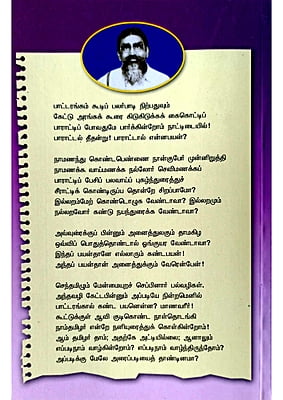 பாட்டரங்கம் கூடிப் பலர்பாடி நிற்பதுவும்
கேட்டு அரங்கக் கூரை கிடுகிடுக்கக் கைகொட்டிப்
பாராட்டிப் போவதுமே பார்க்கின்றோம் நாட்டிடையில்!
பாராட்டல் தீதன்று! பாராட்டால் என்னபயன்?
நாமணந்து கொண்டபெண்ணை நான்குபேர் முன்னிறுத்தி
நாமணக்க வாய்மணக்க நல்லோர் செவிமணக்கப்
பாராட்டிப் பேசிப் பலவாய்ப் புகழ்ந்துரைத்துச்
சீராட்டிக் கொண்டிருப்ப தொன்றே சிறப்பாமோ?
இல்லறம்மேற் கொண்டொழுக வேண்டாவா? இல்லறமும்
நல்லறமோர் கண்டு நயந்துரைக்க வேண்டாவா?
அவ்வுரைக்குப் பின்னும் அனைத்துலகும் தாமகிழ
ஒவ்விப் பொதுத்தொண்டால் ஓங்குயர வேண்டாவா?
இந்தப் பயன்தானே எல்லாரும் கண்டபயன்!
அந்தப் பயன்தான் அனைத்துக்கும் வேரென்பேன்!
செந்தமிழும் மேன்மையுறச் செப்பினார் பல்வழிகள்.
அந்தவழி கேட்டபின்னும் அப்படியே நின்றமெனில்
பாட்டரங்கால் கண்ட பயனென்ன மாணவரீ!
கூட்டுக்குள் ஆவி குடிகொண்ட நாள்தொடங்கி
நாம்தமிழர் என்றே நனியுரைத்துக் கொள்கின்றோம்!
ஆம் தமிழர் தாம்; அதற்கே அட்டியில்லை; ஆனாலும்
எப்படிநாம் வாழ்கின்றோம்? எப்படிநாம் வாழ்ந்திருந்தோம்?
அப்படிக்கு மேலே அரைப்படியைத் தாண்டினமா?